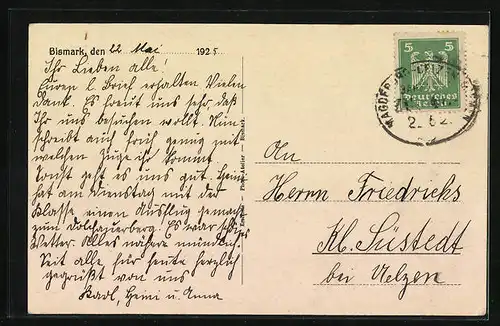 Bismark, den 22 Mai 1925
Ihr Lieben alle!
Euren l. Brief erhalten Vielen
Dank. Es freut uns sehr, daß
Ihr uns besuchen wollt. Nun
schreibt auch früh genug mit
welchem Zuge ihr kommt.
Sonst geht es uns gut. Heini
hat am Dienstag mit der
Klasse einen Ausflug gemacht
zum Dolchauerberg. Es war schönes
Wetter. Alles nähere mündlich.
Seit alle für heute herzlich
gegrüßt von uns
Karl, Heini u. Anna
5 5
Deutsches
Reich
MAGDEBURG
An
Herrn Friedrichs
Kl. Süstedt
bei Uelzen